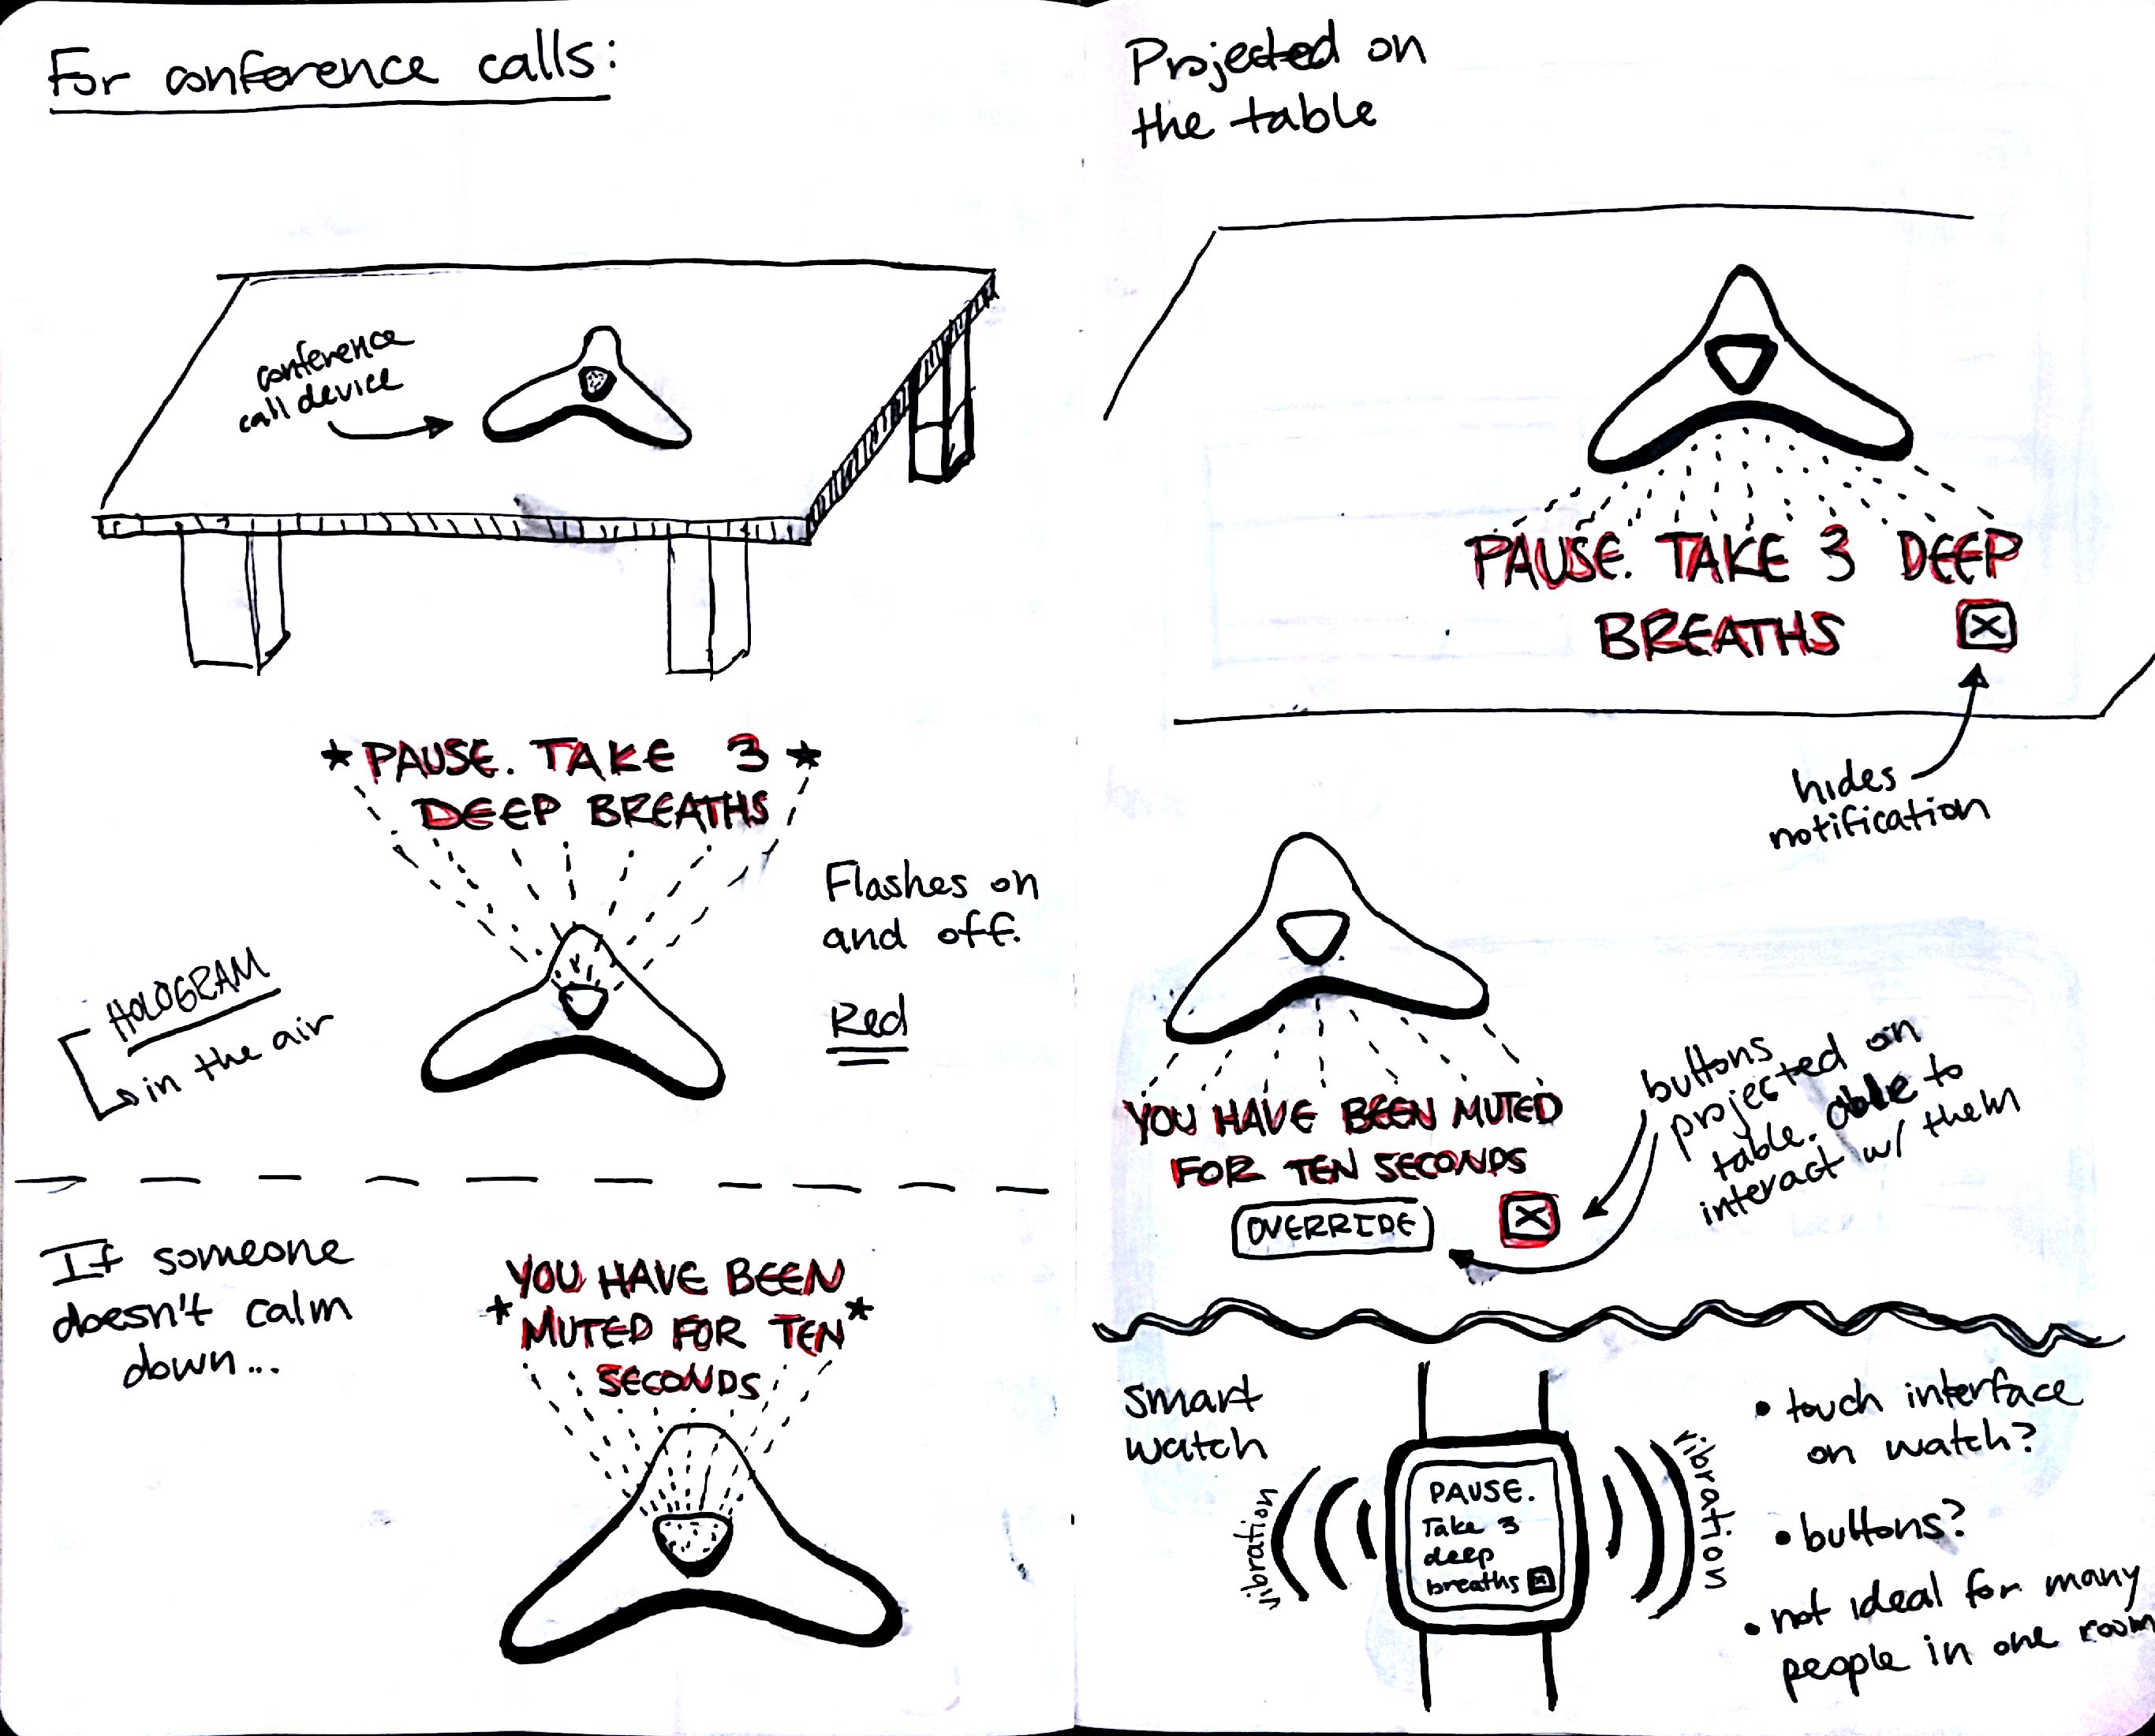 For conference calls:
conference
call device
* PAUSE. TAKE 3 *
DEEP BREATHS
Flashes on
and off.
Red
HOLOGRAM
in the air
If someone
doesn't calm
down...
YOU HAVE BEEN
* MUTED FOR TEN *
SECONDS
Projected on
the table
PAUSE. TAKE 3 DEEP
BREATHS
X
hides
notification
YOU HAVE BEEN MUTED
FOR TEN SECONDS
OVERRIDE X
buttons
projected on
table. able to
interact w/ them
smart
watch
vibration
PAUSE.
Take 3
deep
breaths x
vibration
• touch interface
on watch?
• buttons?
• not ideal for many
people in one room